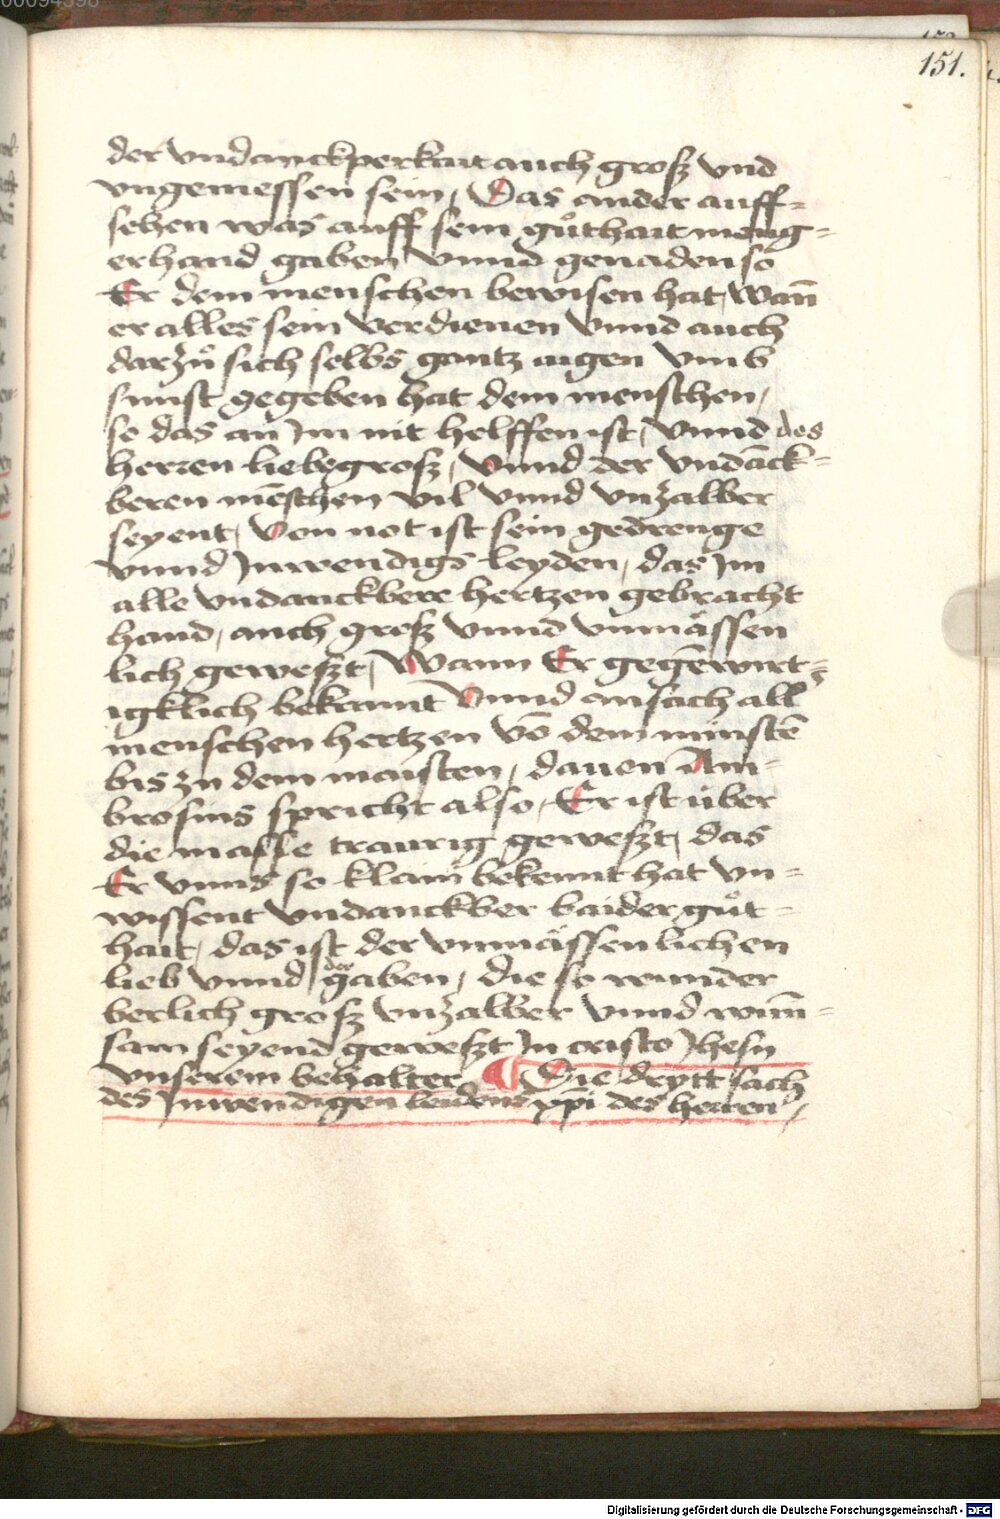 151.
der vndanckperkait auch groß vnd
vngemessen sein, Das ander auff-
sehen was auff sein gůthait menig-
erhand gaben vnnd genaden so
Er dem menschen bewisen hat, wan̄
er alles sein verdienen vnnd auch
darzů sich selbs gantz aigen vmb
sunst gegeben hat dem menschen,
so das an Im nit helffen ist, vnnd des
herren liebe groß, vnnd der vndāck-
beren mēschen vil vnnd vnzalber
seyent, von not ist sein gedrenge
vnnd Inwendigs leyden, das Im
alle vndanckbere hertzen gebracht
hand, auch groß vnnd vnmässen
lich geweßt, Wann Er gegēwirt-
igklich bekannt vnnd ansach all
menschen hertzen vō dem minstē
bis zu dem maisten, dauen Am-
brosius spricht also, Er ist über
die masse traurig geweßt, das
Er vnns so klain bekennt hat vn-
wissent vndanckber baider gůt-
hait, das ist der vnmässenlichen
lieb vnnd der gaben, die so wunder
berlich groß vnzalber vnnd wun̄-
sam seyend geweßt In cristo Jhesu
vnserem behalter Die drytt sach
des Inwendigen leidens xpi des herren,
Digitalisierung gefördert durch die Deutsche Forschungsgemeinschaft - DFG